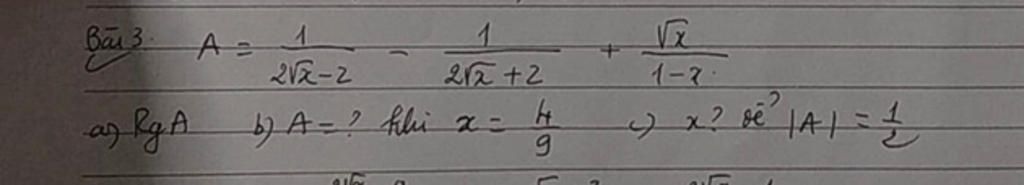 Bài 3. A = 1/(2√x-2) - 1/(2√x+2) + √x/(1-x)
a) Rg A b) A = ? khi x = 4/9 c) x? để |A| = 1/2